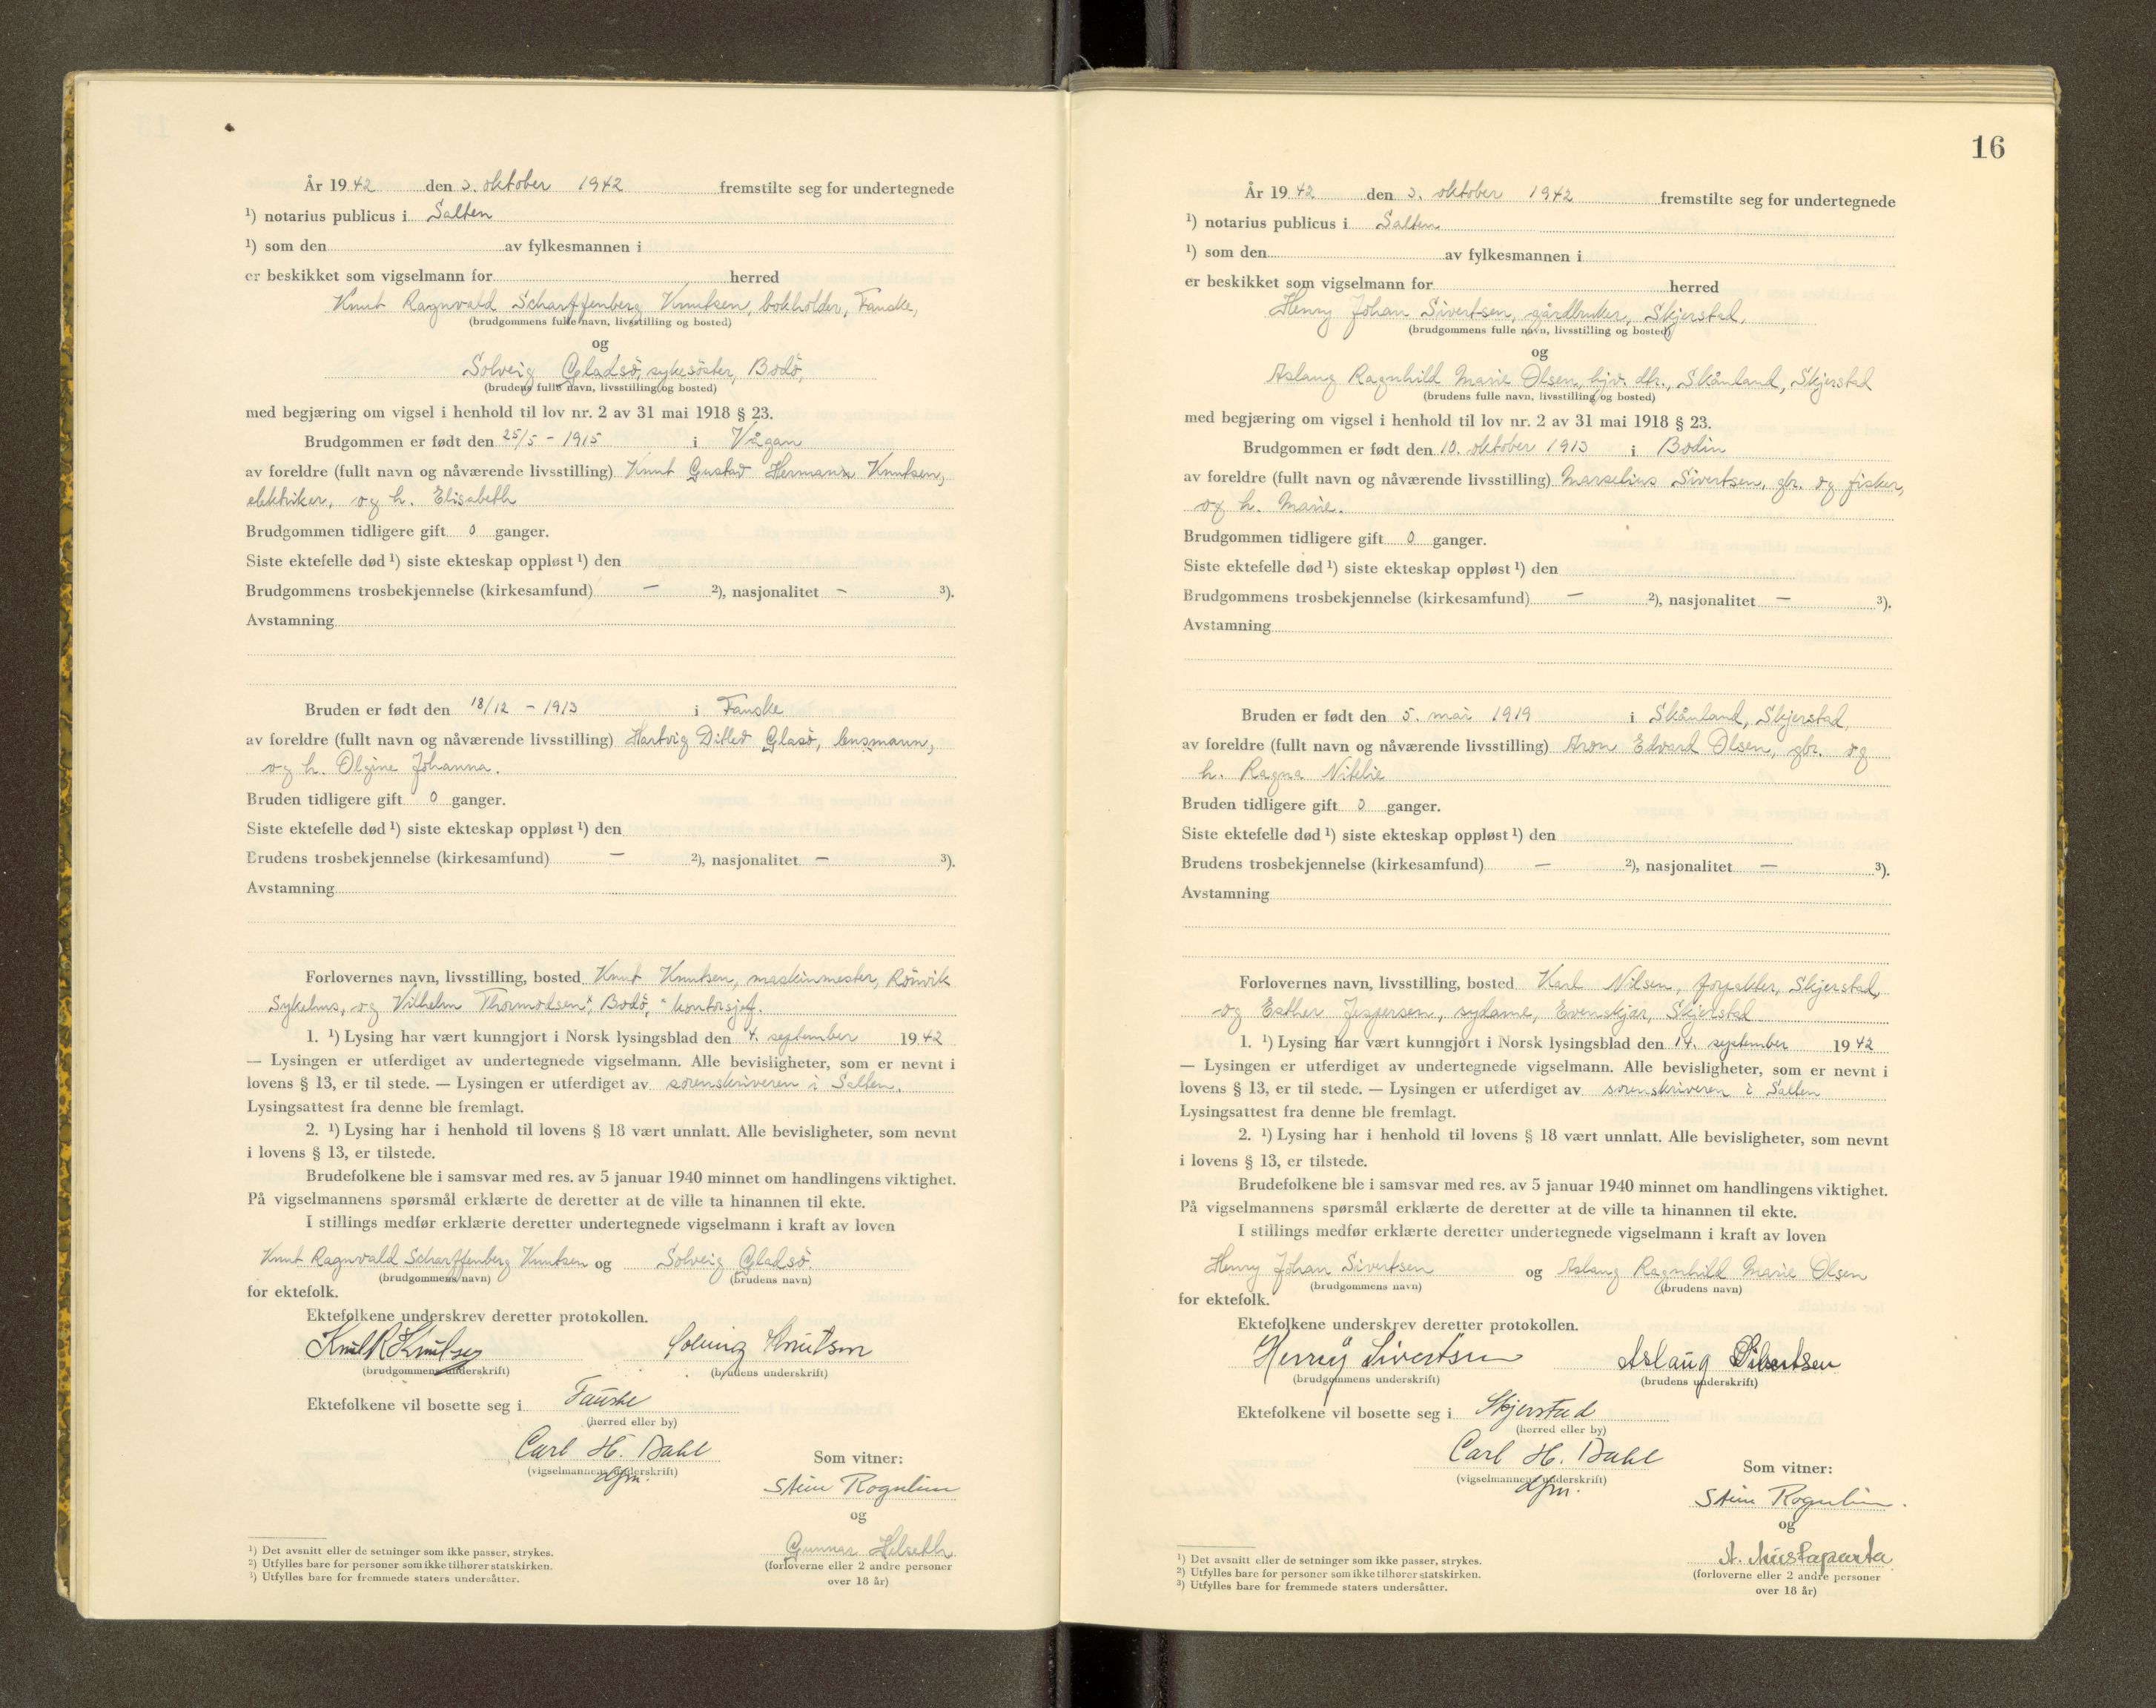 År 1942 den 3. oktober 1942 fremstilte seg for undertegnede
¹) notarius publicus i Salten
¹) som den av fylkesmannen i
er beskikket som vigselmann for herred
Knut Ragnvald Scharffenberg Knutsen, bokholder, Fauske,
(brudgommens fulle navn, livsstilling og bosted)
og
Solveig Gladsö, sykesöster, Bodö,
(brudens fulle navn, livsstilling og bosted)
med begjæring om vigsel i henhold til lov nr. 2 av 31 mai 1918 § 23.
Brudgommen er født den 25/5 - 1915 i Vågan
av foreldre (fullt navn og nåværende livsstilling) Knut Gustav Hermann Knutsen,
elektriker, og h. Elisabeth
Brudgommen tidligere gift 0 ganger.
Siste ektefelle død ¹) siste ekteskap oppløst ¹) den
Brudgommens trosbekjennelse (kirkesamfund) — ²), nasjonalitet — ³).
Avstamning
Bruden er født den 18/12 - 1913 i Fauske
av foreldre (fullt navn og nåværende livsstilling) Hartvig Ditlev Glasö, lensmann,
og h. Olgine Johanna.
Bruden tidligere gift 0 ganger.
Siste ektefelle død ¹) siste ekteskap oppløst ¹) den
Brudens trosbekjennelse (kirkesamfund) — ²), nasjonalitet — ³).
Avstamning
Forlovernes navn, livsstilling, bosted Knut Knutsen, maskinmester, Rönvik
Sykehus, og Vilhelm Thormodsen, Bodö, kontorsjef.
1. ¹) Lysing har vært kunngjort i Norsk lysingsblad den 4. september 1942
— Lysingen er utferdiget av undertegnede vigselmann. Alle bevisligheter, som er nevnt i
lovens § 13, er til stede. — Lysingen er utferdiget av sorenskriveren i Salten.
Lysingsattest fra denne ble fremlagt.
2. ¹) Lysing har i henhold til lovens § 18 vært unnlatt. Alle bevisligheter, som nevnt
i lovens § 13, er tilstede.
Brudefolkene ble i samsvar med res. av 5 januar 1940 minnet om handlingens viktighet.
På vigselmannens spørsmål erklærte de deretter at de ville ta hinannen til ekte.
I stillings medfør erklærte deretter undertegnede vigselmann i kraft av loven
Knut Ragnvald Scharffenberg Knutsen og Solveig Gladsö.
(brudgommens navn) (brudens navn)
for ektefolk.
Ektefolkene underskrev deretter protokollen.
Knut R Knutsen Solveig Knutsen
(brudgommens underskrift) (brudens underskrift)
Ektefolkene vil bosette seg i Fauske
(herred eller by)
Carl H. Dahl
(vigselmannens underskrift)
dfm.
Som vitner:
Stein Rognlien
og
Gunnar Helseth
(forloverne eller 2 andre personer
over 18 år)
¹) Det avsnitt eller de setninger som ikke passer, strykes.
²) Utfylles bare for personer som ikke tilhører statskirken.
³) Utfylles bare for fremmede staters undersåtter.
16
År 1942 den 3. oktober 1942 fremstilte seg for undertegnede
¹) notarius publicus i Salten
¹) som den av fylkesmannen i
er beskikket som vigselmann for herred
Henry Johan Sivertsen, gårdbruker, Skjerstad,
(brudgommens fulle navn, livsstilling og bosted)
og
Aslaug Ragnhild Marie Olsen, hjv. dtr., Skånland, Skjerstad
(brudens fulle navn, livsstilling og bosted)
med begjæring om vigsel i henhold til lov nr. 2 av 31 mai 1918 § 23.
Brudgommen er født den 10. oktober 1913 i Bodin
av foreldre (fullt navn og nåværende livsstilling) Marselius Sivertsen, gbr. og fisker,
og h. Marie.
Brudgommen tidligere gift 0 ganger.
Siste ektefelle død ¹) siste ekteskap oppløst ¹) den
Brudgommens trosbekjennelse (kirkesamfund) — ²), nasjonalitet — ³).
Avstamning
Bruden er født den 5. mai 1919 i Skånland, Skjerstad,
av foreldre (fullt navn og nåværende livsstilling) Aron Edvard Olsen, gbr. og
h. Ragna Nikelie
Bruden tidligere gift 0 ganger.
Siste ektefelle død ¹) siste ekteskap oppløst ¹) den
Brudens trosbekjennelse (kirkesamfund) — ²), nasjonalitet — ³).
Avstamning
Forlovernes navn, livsstilling, bosted Karl Nilsen, forpakter, Skjerstad,
og Esther Jespersen, sydame, Evenskjær, Skjerstad
1. ¹) Lysing har vært kunngjort i Norsk lysingsblad den 14. september 1942
— Lysingen er utferdiget av undertegnede vigselmann. Alle bevisligheter, som er nevnt i
lovens § 13, er til stede. — Lysingen er utferdiget av sorenskriveren i Salten
Lysingsattest fra denne ble fremlagt.
2. ¹) Lysing har i henhold til lovens § 18 vært unnlatt. Alle bevisligheter, som nevnt
i lovens § 13, er tilstede.
Brudefolkene ble i samsvar med res. av 5 januar 1940 minnet om handlingens viktighet.
På vigselmannens spørsmål erklærte de deretter at de ville ta hinannen til ekte.
I stillings medfør erklærte deretter undertegnede vigselmann i kraft av loven
Henry Johan Sivertsen og Aslaug Ragnhild Marie Olsen
(brudgommens navn) (brudens navn)
for ektefolk.
Ektefolkene underskrev deretter protokollen.
Henry Sivertsen Aslaug Sivertsen
(brudgommens underskrift) (brudens underskrift)
Ektefolkene vil bosette seg i Skjerstad
(herred eller by)
Carl H. Dahl
(vigselmannens underskrift)
dfm.
Som vitner:
Stein Rognlien.
og
A. Mustaparta
(forloverne eller 2 andre personer
over 18 år)
¹) Det avsnitt eller de setninger som ikke passer, strykes.
²) Utfylles bare for personer som ikke tilhører statskirken.
³) Utfylles bare for fremmede staters undersåtter.